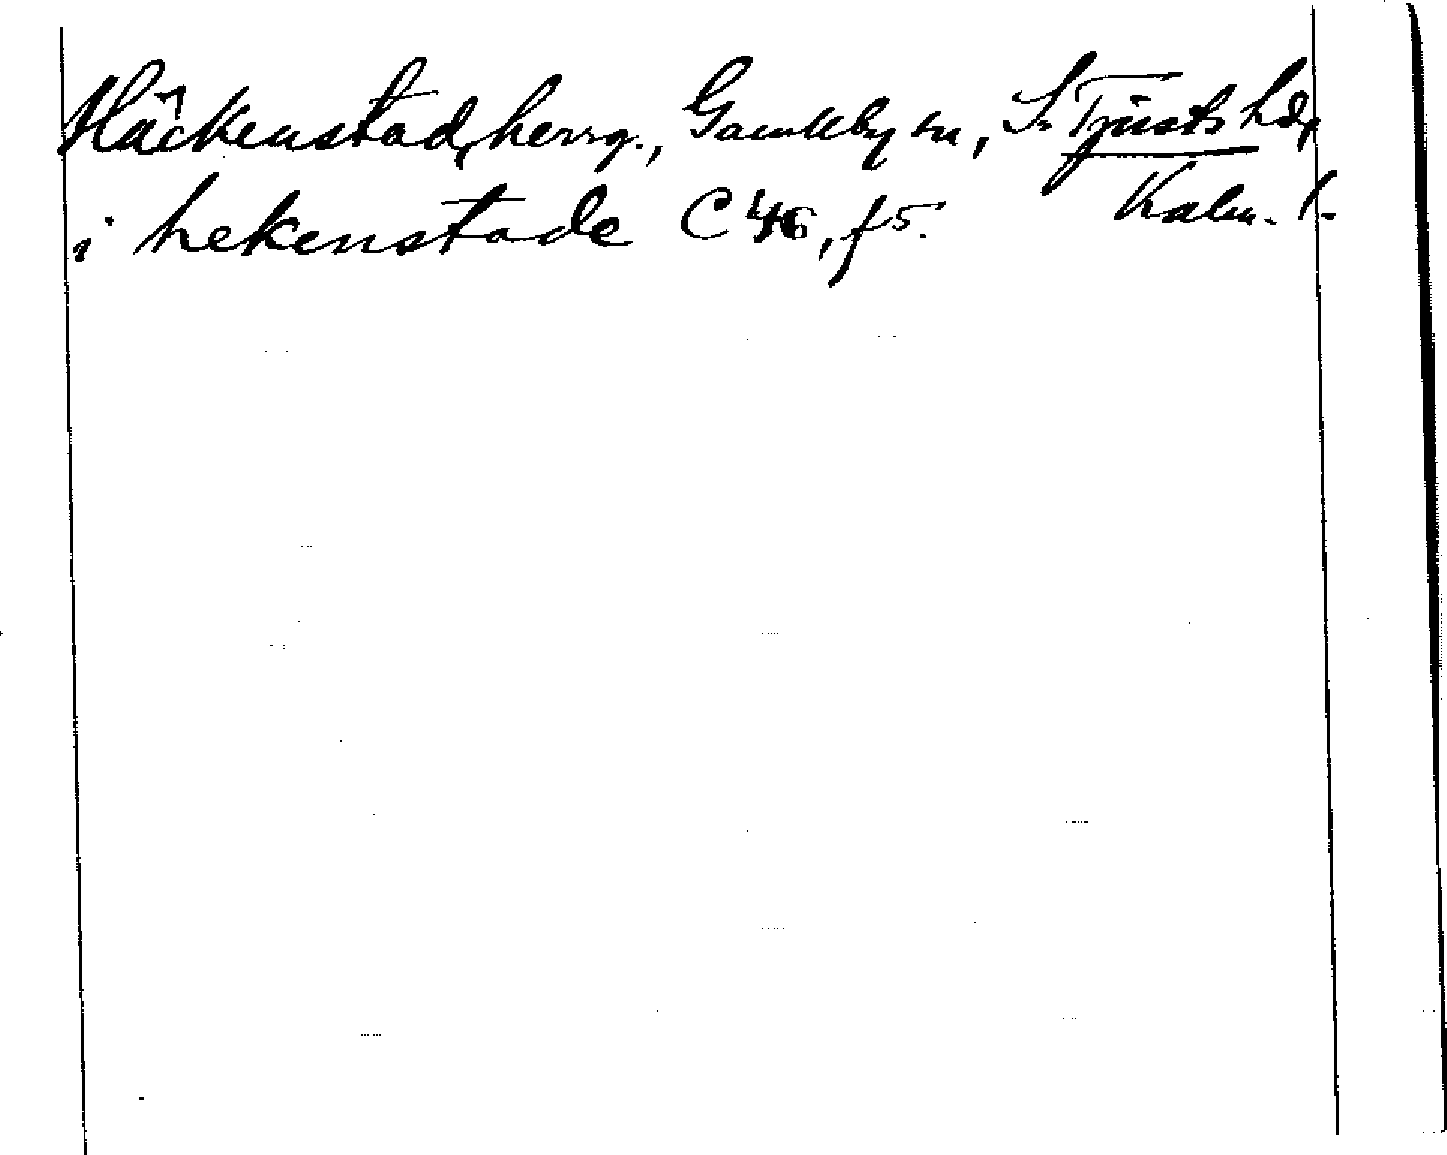 Häckenstad, herrg., Gamleby sn, S. Tjusts hd,
Kalm. l.
i hekenstade C 46, f 5.